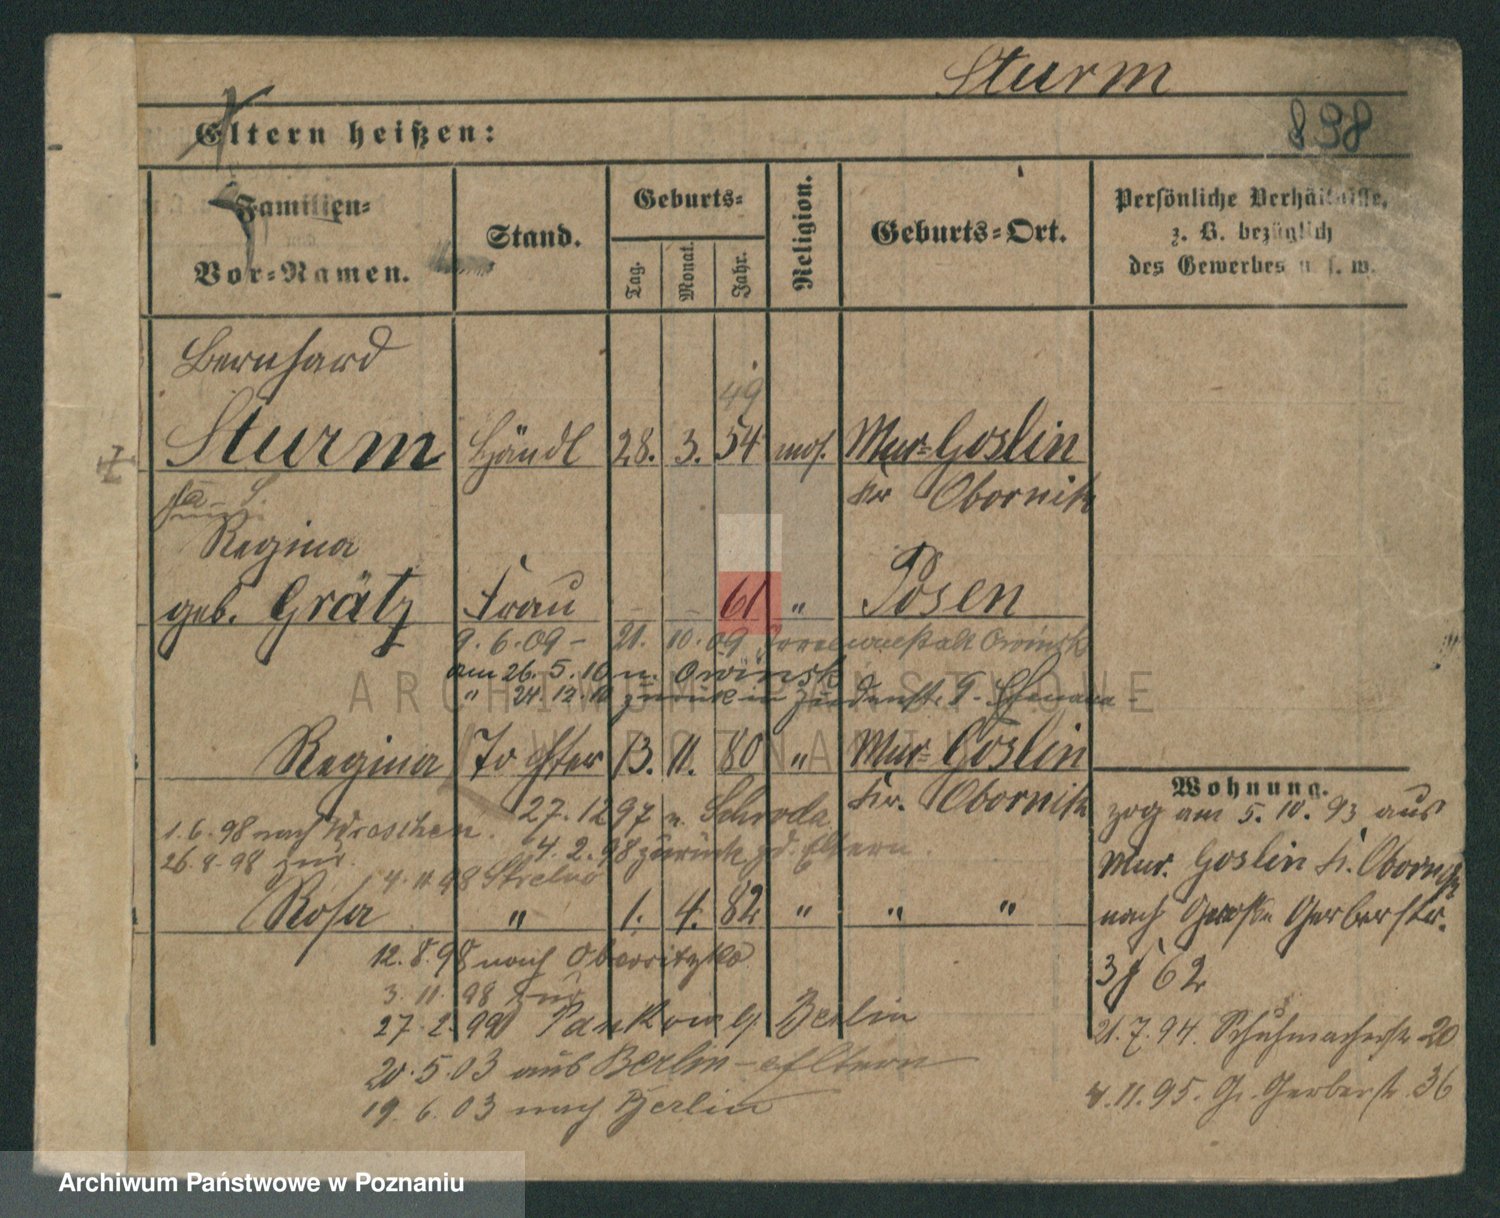 Sturm
898
Eltern heißen:
Familien=
Vor=Namen.
Stand.
Geburts=
Tag.
Monat.
Jahr.
Religion.
Geburts=Ort.
Persönliche Verhältnisse,
z. B. bezüglich
des Gewerbes u. s. w.
Bernhard
49
Sturm Händl 28. 3. 54 mos. Mur=Goslin
Kr Obornik
Regina
geb. Grätz Frau – – 61 " Posen
9. 6. 09 – 21. 10. 09 Irrenanstalt Owinsk
am 26. 5. 10 n. Owinsk
" 24. 12. 10 zurück in
Regina Tochter 13. 11. 80 " Mur=Goslin
Kr. Obornik
27. 12 97 n. Schroda
1. 6. 98 nach Wreschen.
4. 2. 98 zurück z. d. Eltern.
26. 8. 98 zur.
4. 11 98 Strelno
Rosa " 1. 4. 82 " " "
12. 8. 98 nach Obersitzko
3. 11. 98 zur
27. 2. 99 Pankow b/ Berlin
20. 5. 03 aus Berlin – Eltern
19. 6. 03 nach Berlin
Wohnung.
zog am 5. 10. 93 aus
Mur. Goslin Kr. Obornik
nach Große Gerberstr.
62
21. 7. 94. Schuhmacherstr 20
4. 11. 95. Gr. Gerberst. 36
ARCHIWUM PAŃSTWOWE
W POZNANIU
Archiwum Państwowe w Poznaniu